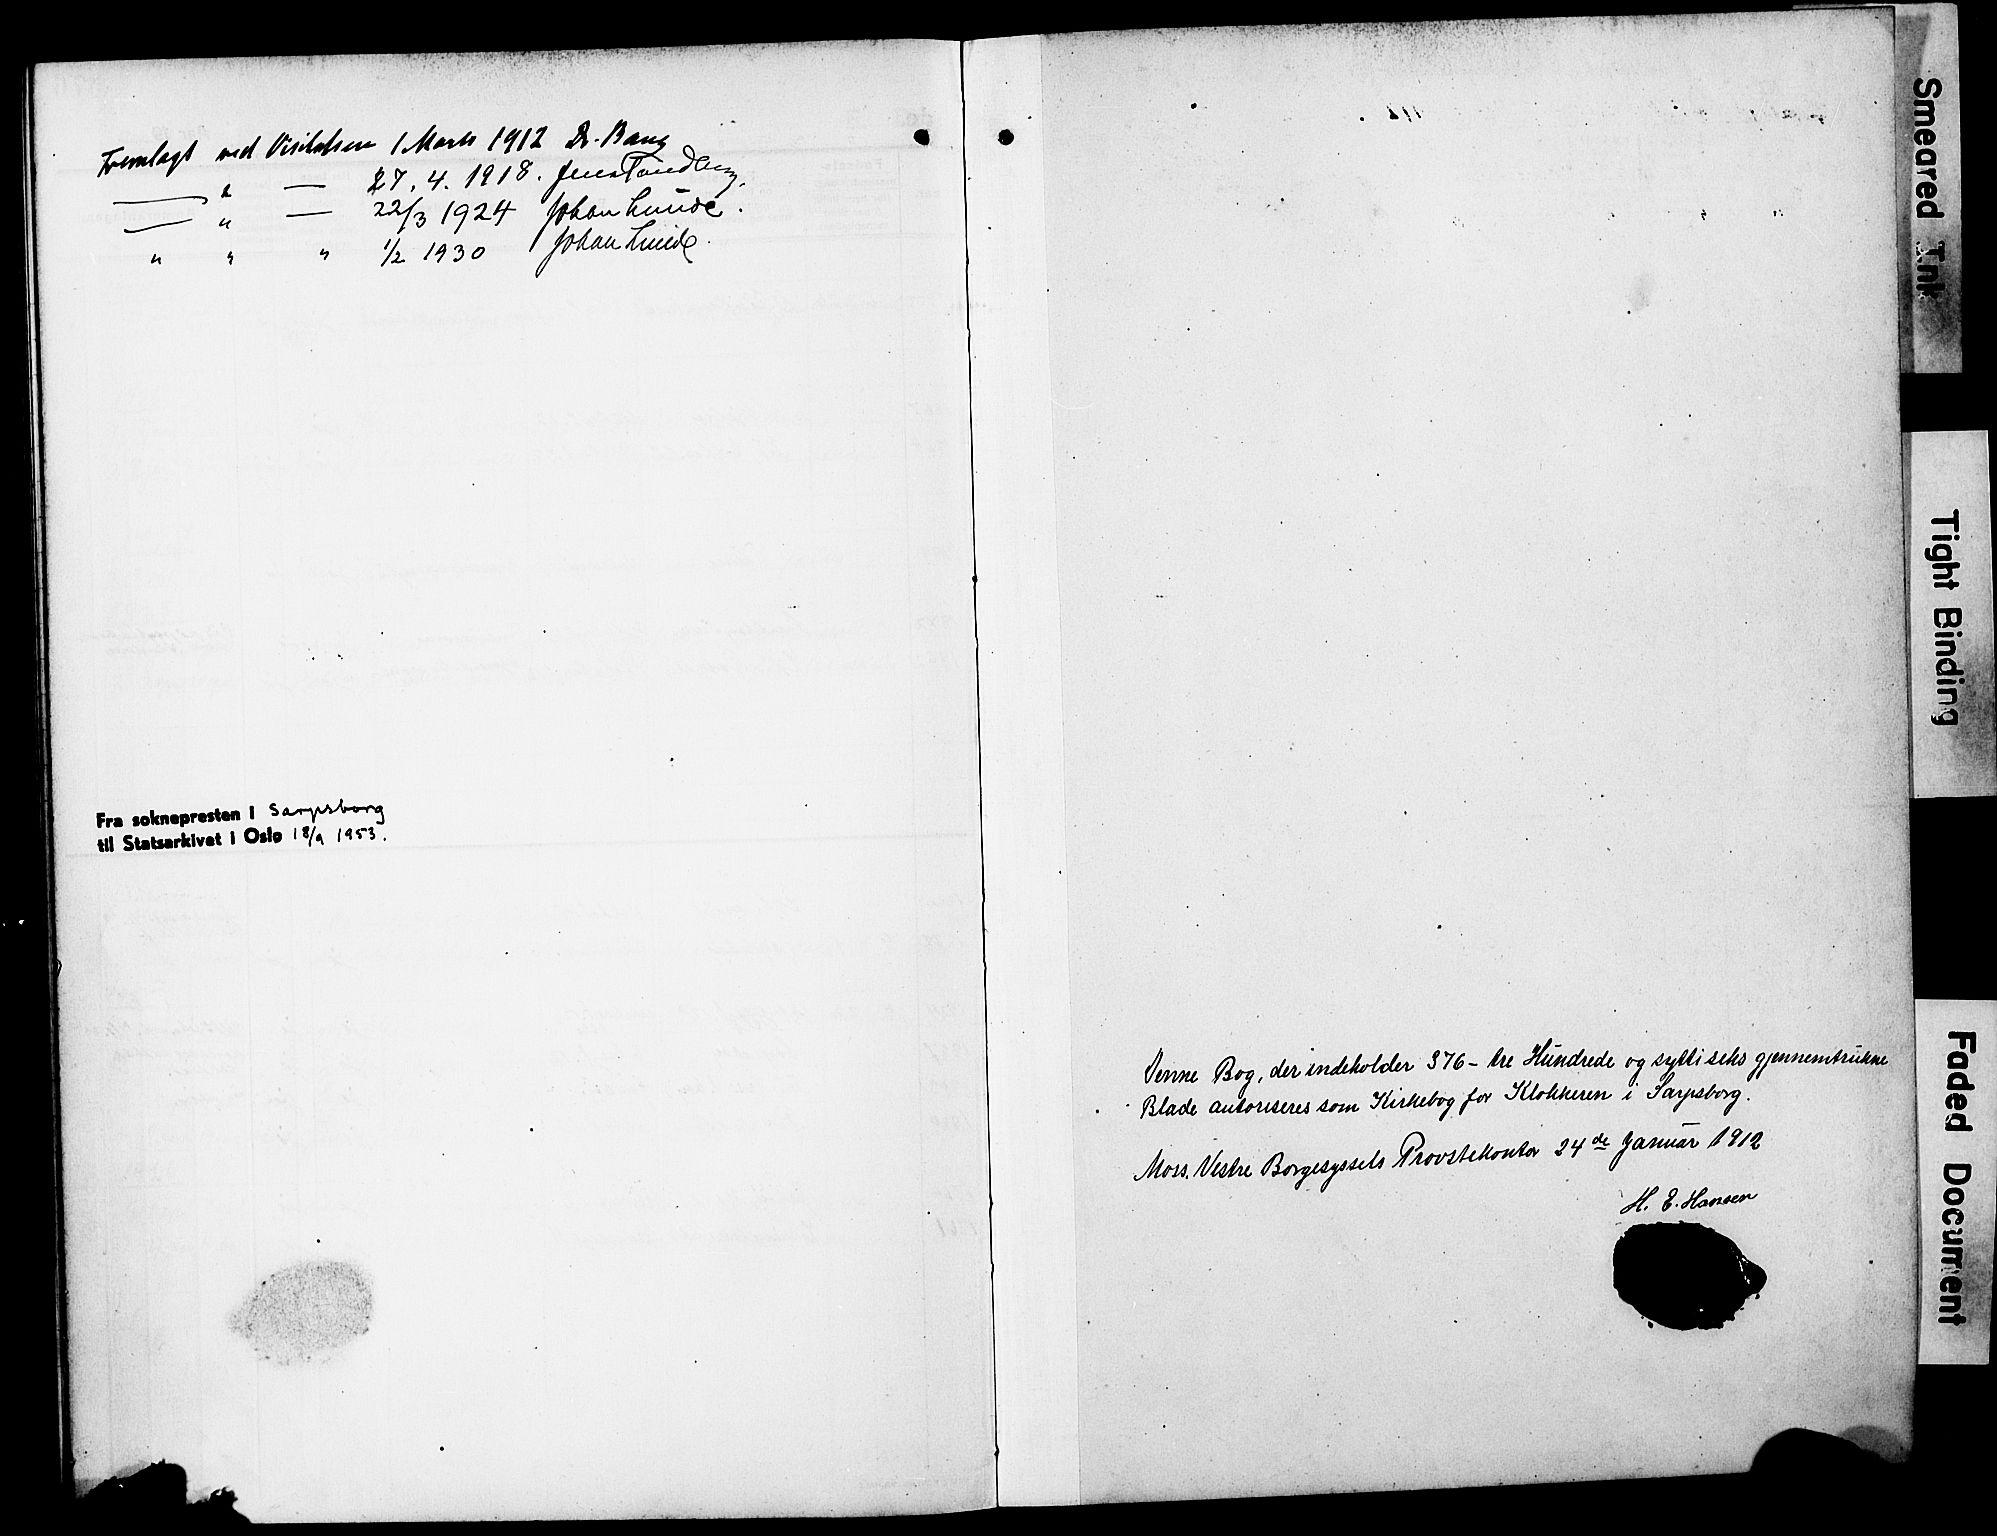 Fremlagt ved Visitatsen 1 Marts 1912 Dr. Bang
— " — 27. 4. 1918. Jens Tandberg.
— " — 22/3 1924 Johan Lunde.
" " " 1/2 1930 Johan Lunde.
Fra soknepresten i Sarpsborg
til Statsarkivet i Oslo 18/9 1953.
Denne Bog, der indeholder 376 – tre Hundrede og sytti seks gjennemtrukne
Blade autoriseres som Kirkebog for Klokkeren i Sarpsborg.
Moss. Vestre Borgesyssels Provstekontor 24de Januar 1912
H. E. Hansen
Smeared Ink
Tight Binding
Faded Document